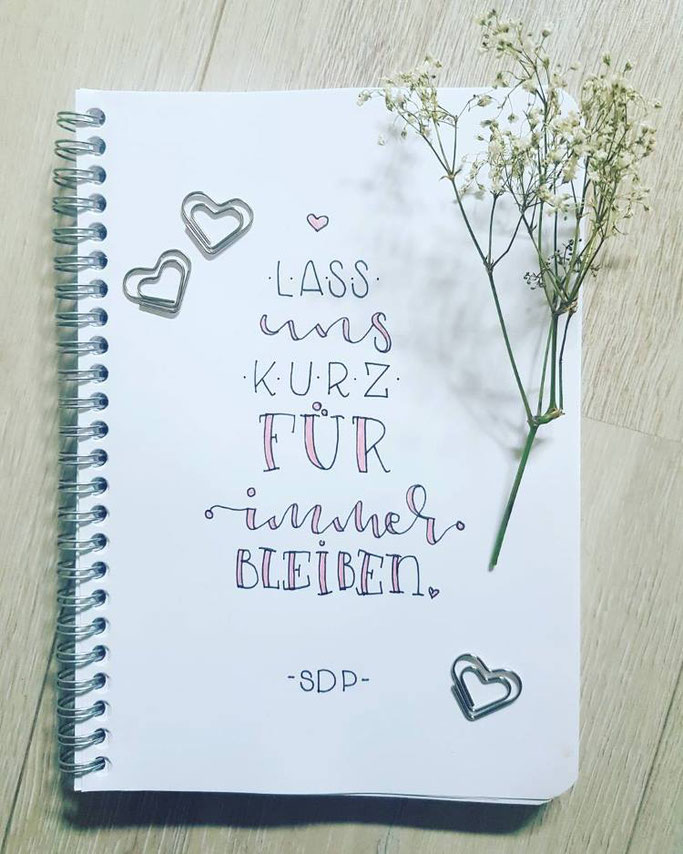 ·L·A·S·S·
uns
·K·U·R·Z·
FÜR
immer
BLEIBEN.
-SDP-